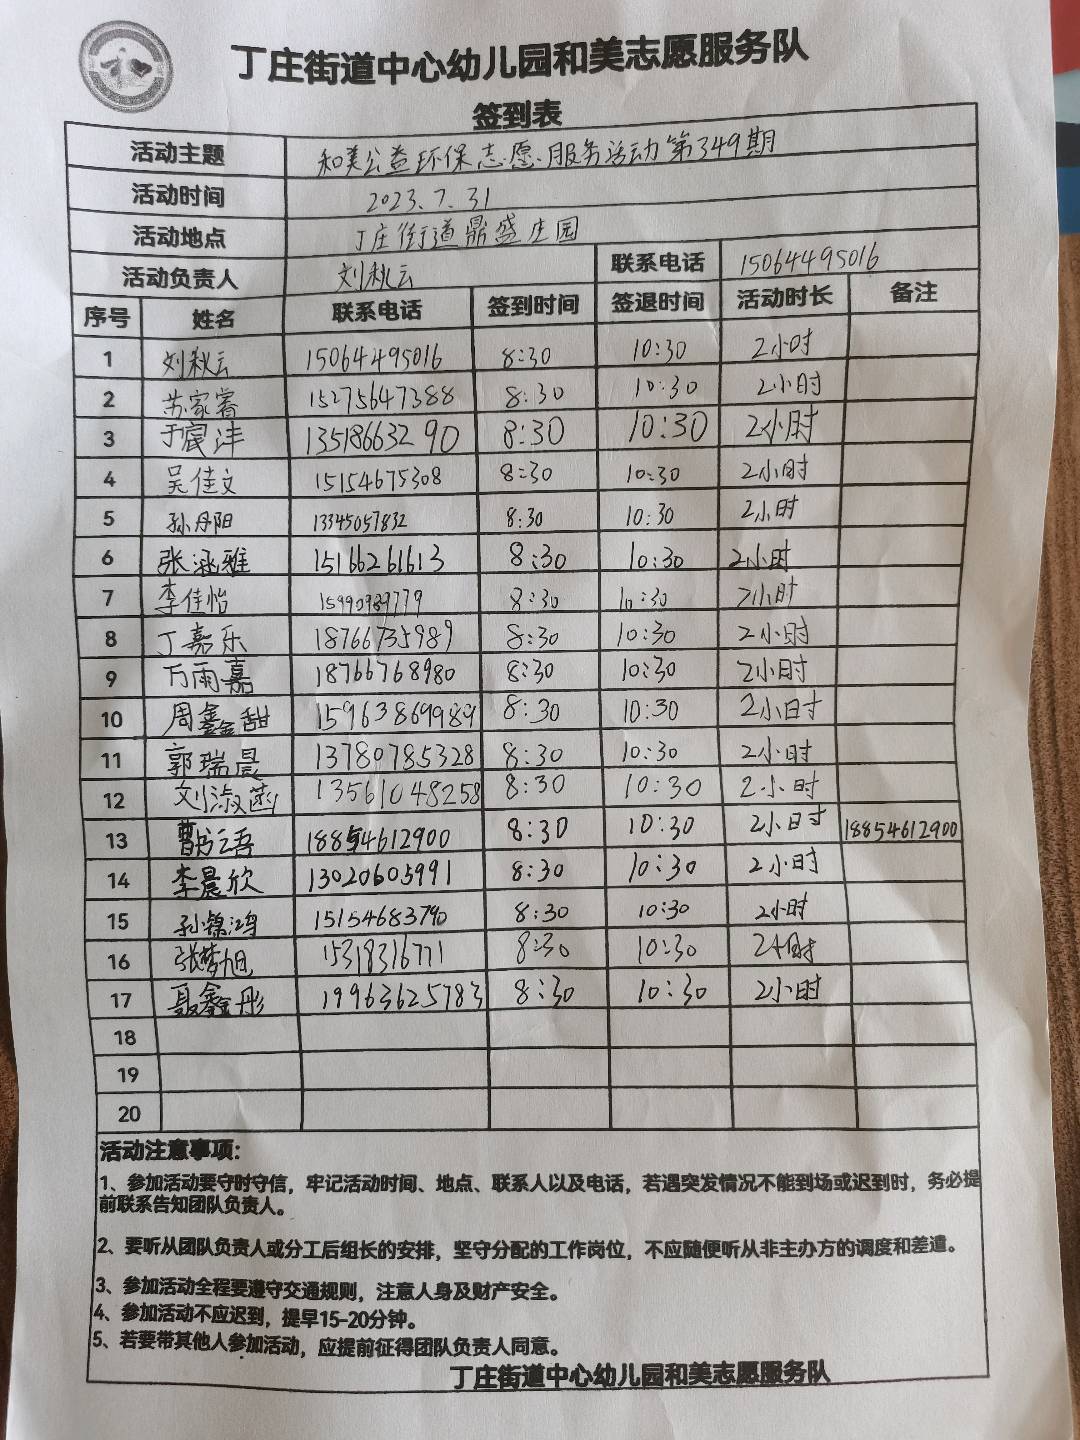 丁庄街道中心幼儿园和美志愿服务队
签到表
活动主题 和美公益环保志愿服务活动第349期
活动时间 2023.7.31
活动地点 丁庄街道鼎盛庄园
活动负责人 刘秋云 联系电话 15064495016
序号 姓名 联系电话 签到时间 签退时间 活动时长 备注
1 刘秋云 15064495016 8:30 10:30 2小时
2 苏家睿 15275647388 8:30 10:30 2小时
3 于宸沣 13518663290 8:30 10:30 2小时
4 吴佳文 15154675308 8:30 10:30 2小时
5 孙丹阳 13345057832 8:30 10:30 2小时
6 张涵雅 15166261613 8:30 10:30 2小时
7 李佳怡 8:30 10:30 2小时
8 丁嘉乐 18766735989 8:30 10:30 2小时
9 万雨嘉 18766768980 8:30 10:30 2小时
10 周鑫甜 15963869989 8:30 10:30 2小时
11 郭瑞晨 13780785328 8:30 10:30 2小时
12 刘淑菡 13561048258 8:30 10:30 2小时
13 18854612900 8:30 10:30 2小时 18854612900
14 李晨欣 13020605991 8:30 10:30 2小时
15 孙锦鸿 15154683790 8:30 10:30 2小时
16 张梦旭 15318316771 8:30 10:30 2小时
17 聂鑫彤 19963625783 8:30 10:30 2小时
18
19
20
活动注意事项:
1、参加活动要守时守信，牢记活动时间、地点、联系人以及电话，若遇突发情况不能到场或迟到时，务必提
前联系告知团队负责人。
2、要听从团队负责人或分工后组长的安排，坚守分配的工作岗位，不应随便听从非主办方的调度和差遣。
3、参加活动全程要遵守交通规则，注意人身及财产安全。
4、参加活动不应迟到，提早15-20分钟。
5、若要带其他人参加活动，应提前征得团队负责人同意。
丁庄街道中心幼儿园和美志愿服务队